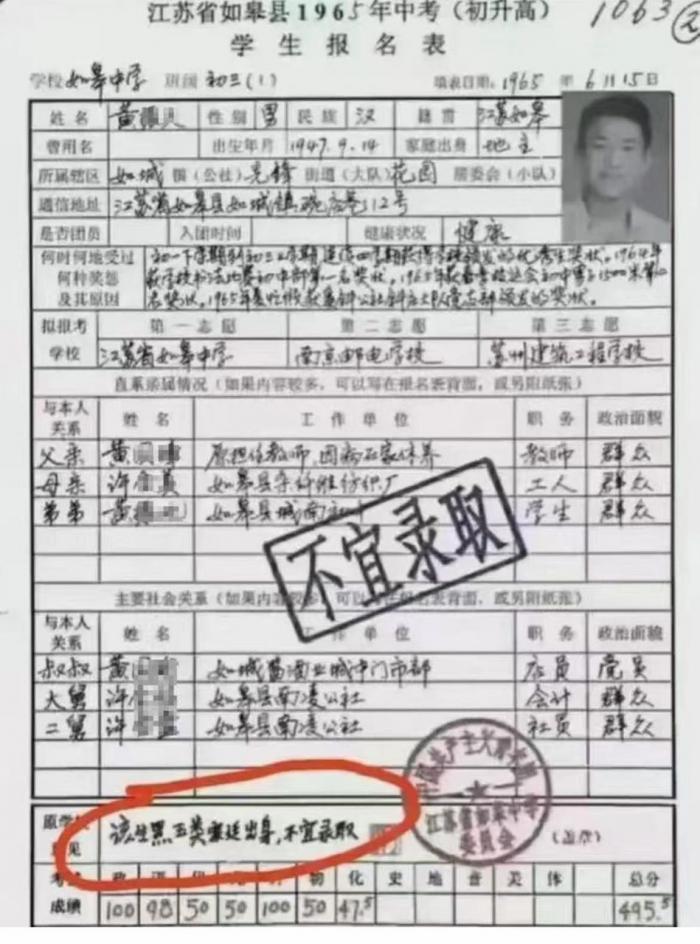 江苏省如皋县1965年中考（初升高）
1063
学生报名表
学校 如皋中学 班级 初三（1） 填表日期：1965年6月15日
姓名 黄 性别 男 民族 汉 籍贯 江苏如皋
曾用名 出生年月 1947.9.14 家庭出身 地主
所属辖区 如城 镇（公社）先锋 街道（大队）花园 居委会（小队）
通信地址 江苏省如皋县如城镇 巷112号
是否团员 入团时间 健康状况 健康
何时何地受过何种奖惩及其原因
初一下学期到初三上学期连续四学期获得学校颁发的优秀生奖状。1964年
获学校 比赛初中部第一名奖状。1965年获 学校运会初中男子1500米第
名奖状。1965年 获 公社 大队党支部颁发的奖状。
拟报考学校 第一志愿 第二志愿 第三志愿
江苏省如皋中学 南京邮电学校 苏州建筑工程学校
直系亲属情况（如果内容较多，可以写在报名表背面，或另附纸张）
与本人关系 姓名 工作单位 职务 政治面貌
父亲 黄 原担任教师，因病在家休养 教师 群众
母亲 许 如皋县 纺织厂 工人 群众
弟弟 黄 如皋县城南 学生 群众
不宜录取
主要社会关系（如果内容较多，可以写在报名表背面，或另附纸张）
与本人关系 姓名 工作单位 职务 政治面貌
叔叔 黄 如城 酒业城中门市部 店员 党员
大舅 许 如皋县南凌公社 会计 群众
二舅 许 如皋县南凌公社 社员 群众
中国共产主义青年团
江苏省如皋中学
委员会
原学校意见 该生黑五类家庭出身，不宜录取 （盖章）
化 史 地 音 美 体 总分
成绩 100 98 50 50 100 50 47.5 495.5